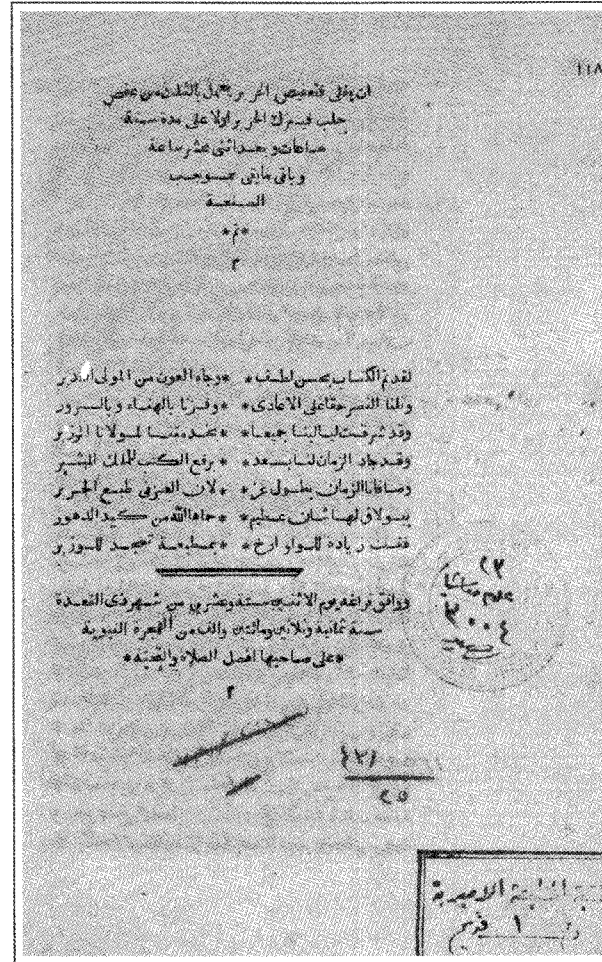 ١١٨
ان يغلى فتعفيص الحرير يعمل بالثلث من عفص
حلب فيترك الحرير اولا على مدة ستة
ساعات وبعد اثنى عشر ساعة
وباقى مابقى بموجب
الصنعة
*تم*
٢
لقد تم الكتاب بحسن لطف * * وجاه العون من المولى القدير
ونلنا النصر حقا على الاعادى * * وفزنا بالهناء وبالسرور
وقد شرفت ليالينا جميعا * لمولانا الوزير
وقد جاد الزمان لنا بسعد * برفع الكتب للملك المشير
وصافانا الزمان بطول عز * * لان العز فى طبع الحرير
ببولاق لها شان عظيم * * حماها الله من كيد الدهور
فقلت زيادة للواو ارخ * * بمطبعة تجدد للوزير
ووافق فراغه يوم الاثنين ستة وعشرين من شهر ذى القعدة
سنة ثمانية وثلاثين ومائتين والف من الهجرة النبوية
*على صاحبها افضل الصلاة والتحية*
٢
٢٣
علوم
٣٠٠٤
٢٥
الاميرية
١ قديم